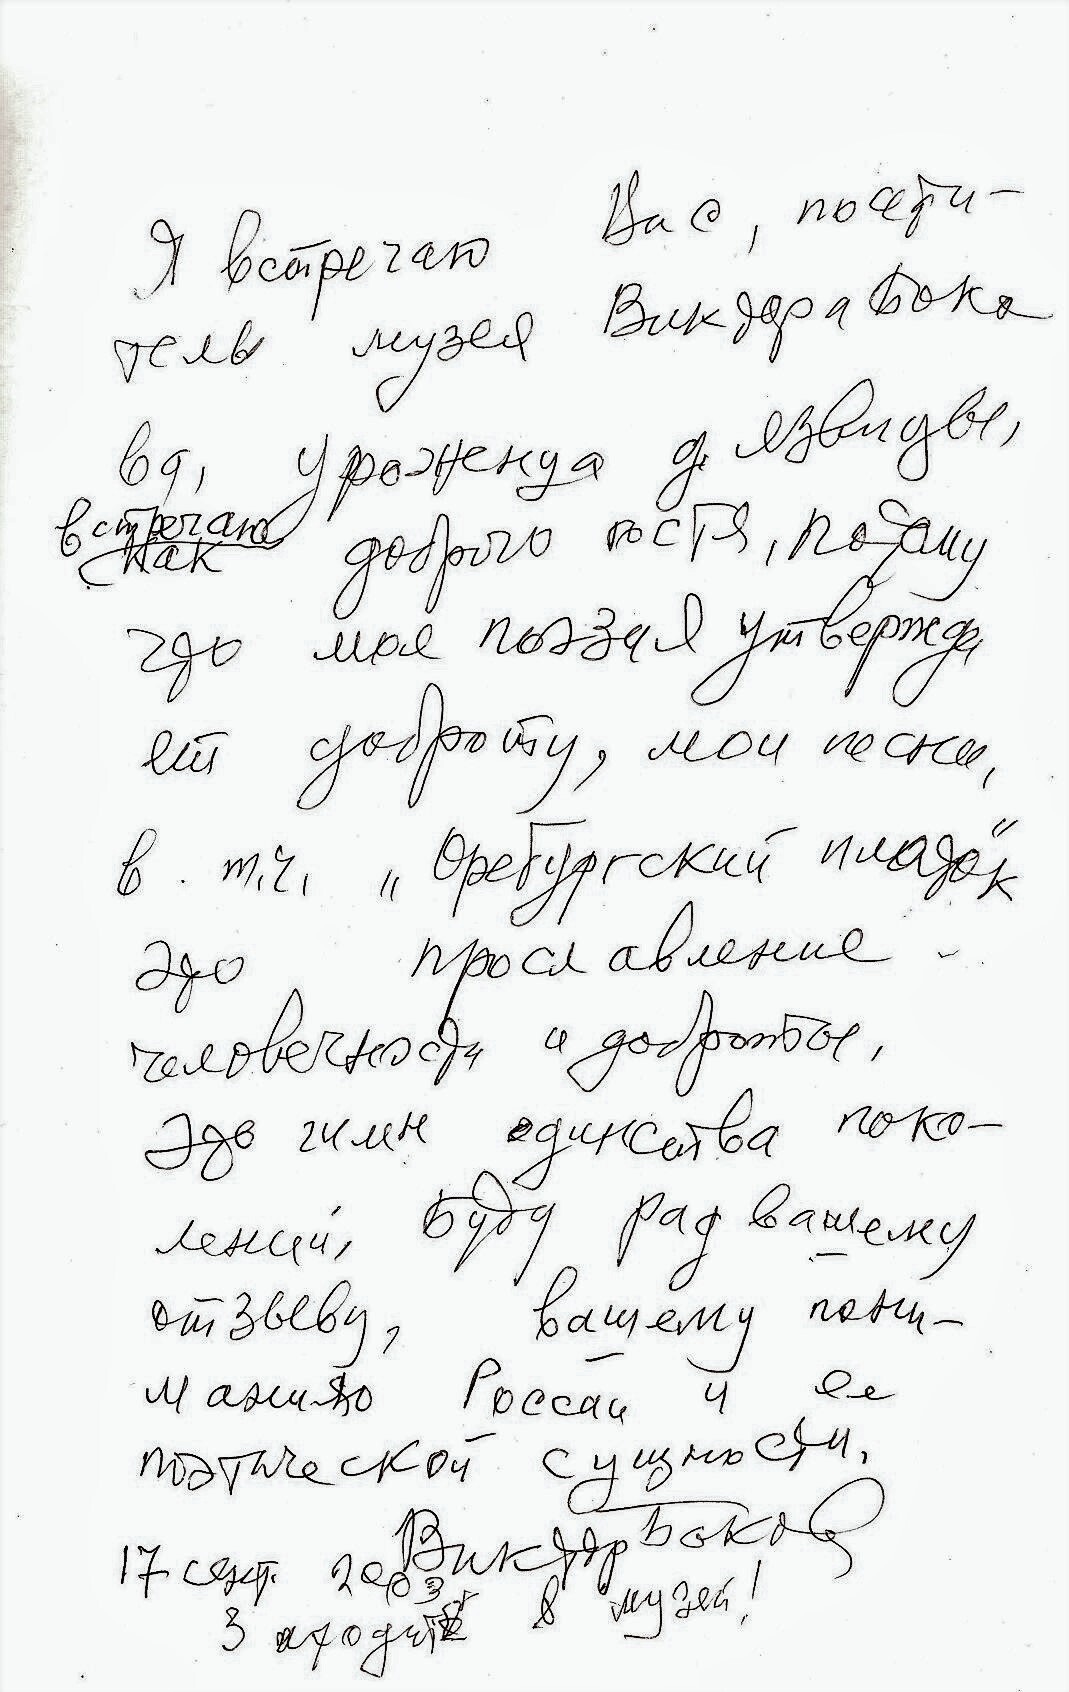 Я встречаю Вас, посети-
тель музея Виктора Боко
ва, уроженца д. Язвицы,
встречаю
как доброго гостя, потому
что моя поэзия утвержда
ет доброту, мои песни,
в т.ч. „Оребургский платок"
это прославление
человечности и доброты,
Это гимн единства поко-
лений, Буду рад вашему
отзыву, вашему пони-
манию России и ее
поэтической сущности.
Виктор Боков
17 сент. 2003
Заходите в музей!